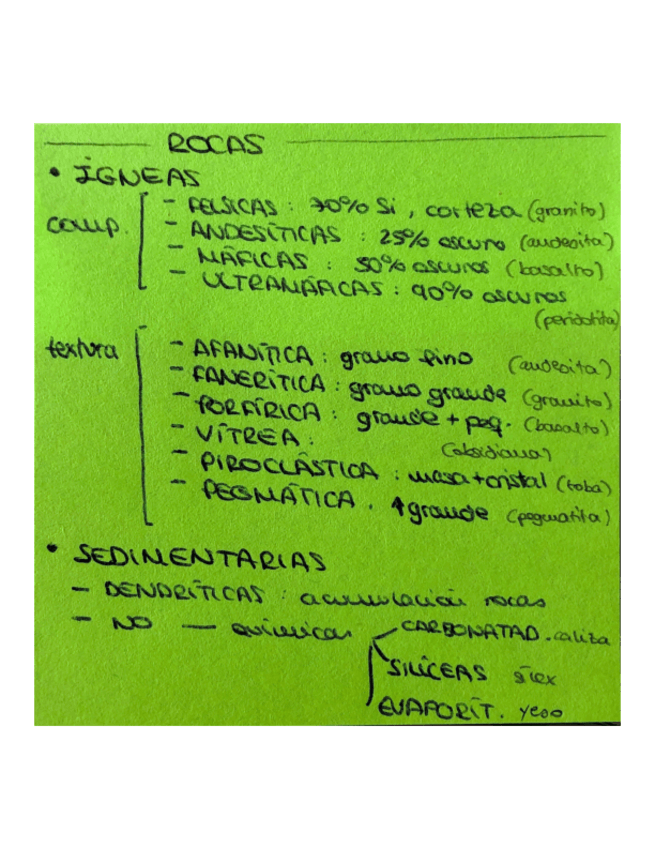 ROCAS
• ÍGNEAS
comp.
- FELSICAS : 70% Si , corteza (granito)
- ANDESÍTICAS : 25% oscuro (andesita)
- MÁFICAS : 50% oscuros (basalto)
- ULTRAMÁFICAS : 90% oscuros
(peridotita)
textura
- AFANÍTICA : grano fino (andesita)
- FANERÍTICA : grano grande (granito)
- PORFÍRICA : grande + peq. (basalto)
- VÍTREA : (obsidiana)
- PIROCLÁSTICA : masa + cristal (toba)
- PEGMÁTICA . ↑ grande (pegmatita)
• SEDIMENTARIAS
- DENDRÍTICAS : acumulación rocas
- NO — químicas CARBONATAD. caliza
SILÍCEAS sílex
EVAPORÍT. yeso